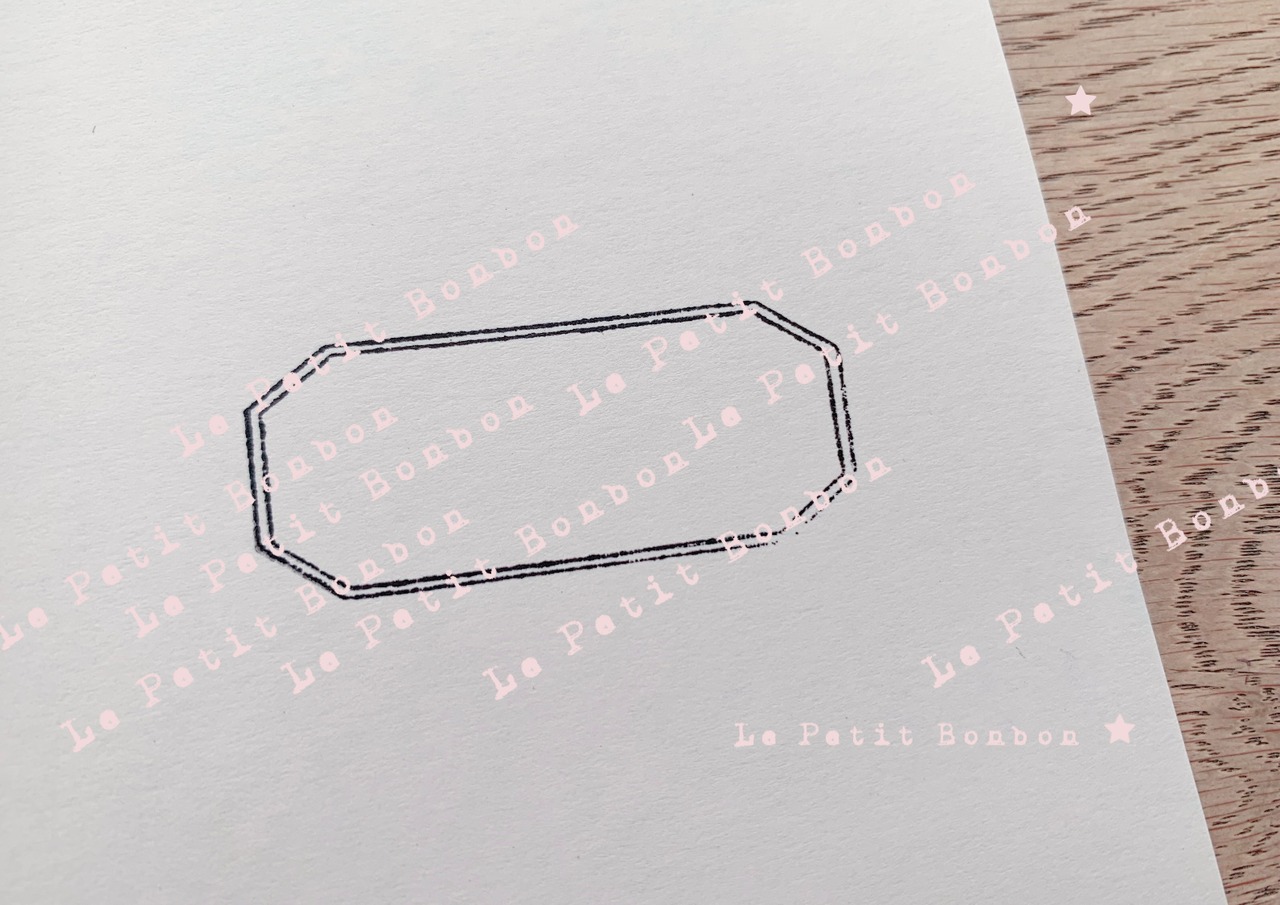 Le Petit Bonbon
Le Petit Bonbon
Le Petit Bonbon
Le Petit Bonbon
Le Petit Bonbon
Le Petit Bonbon
Le Petit Bonbon
Le Petit Bonbon
Le Petit Bonb
Le Petit Bonbon